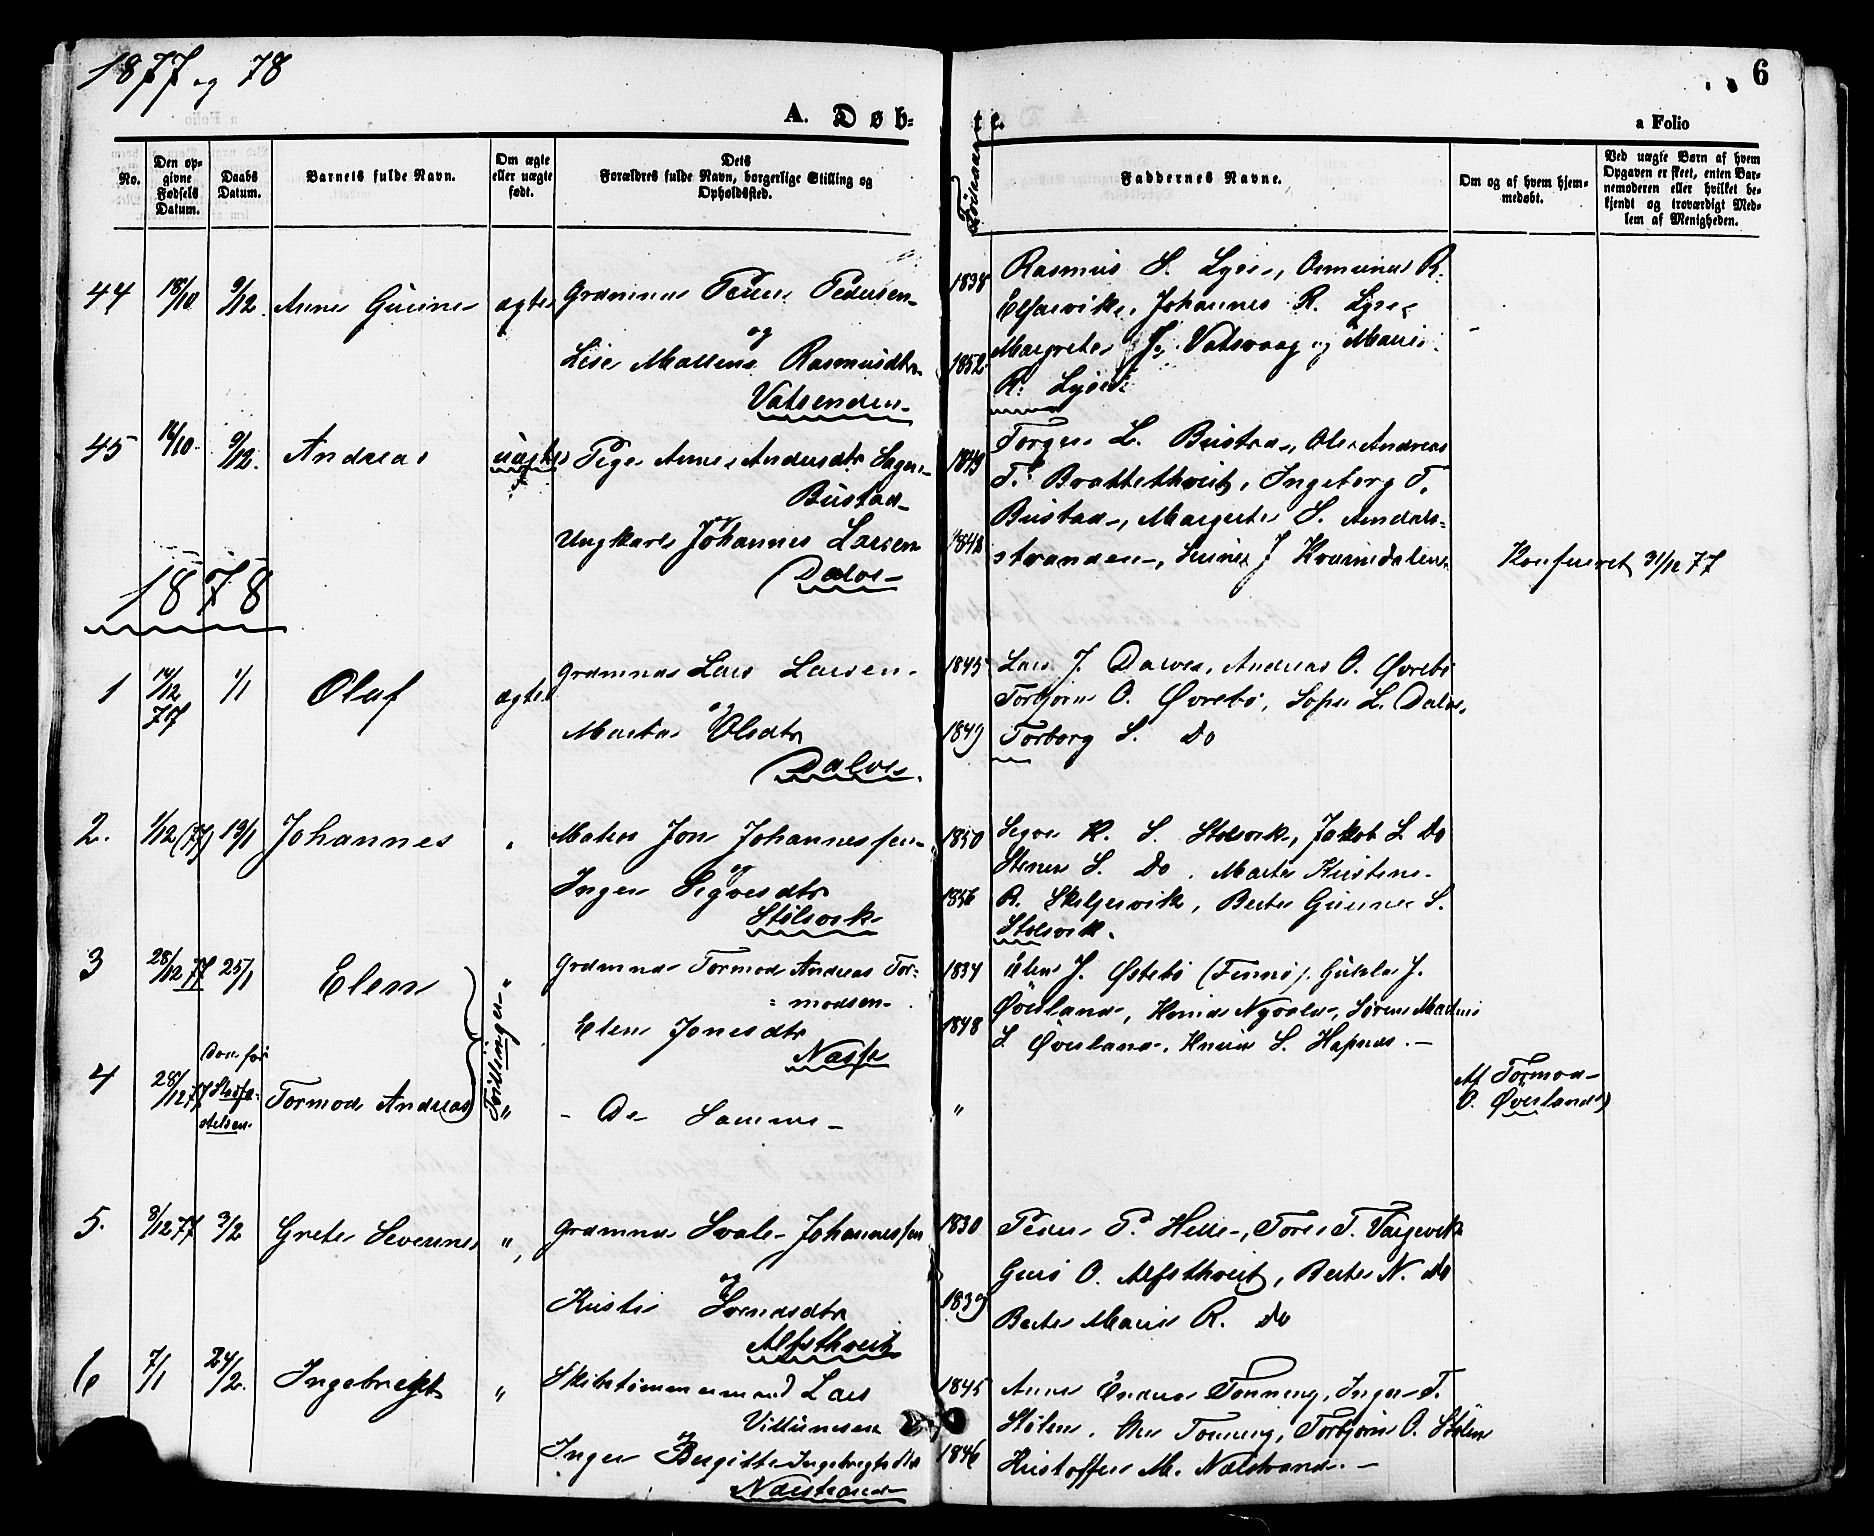 1877 og 78
6
A. Døb-
te.
a Folio
No.
Den op-
givne
Fødsels
Datum.
Daabs
Datum.
Barnets fulde Navn.
Om ægte
eller uægte
født.
Dets
Forældres fulde Navn, borgerlige Stilling og
Opholdssted.
Fødselsaar
Faddernes Navne.
Om og af hvem hjem-
medøbt.
Ved uægte Børn af hvem
Opgaven er skeet, enten Bar-
nemoderen eller hvilket be-
kjendt og troværdigt Med-
lem af Menigheden.
44 18/10 9/12. Anne Gurine ægte Grdmnd Peder Pedersen
og
Lise Mallene Rasmusdtr
Vatsenden
1838
1852
Rasmus S. Lyse, R.
Johannes R. Lyse
Margrete J. Vatsvaag og Marie
R. Lyse
45 14/10 9/12. Andreas uægte Pige Anne Andersdtr
Bustad
og
Ungkarl Johannes Larsen
Dalve
1849
1848
Torger L. Bustad, Ole Andreas
T. Brattethveit, Ingeborg T.
Bustad, Margrete S. Amdals-
stranden, J Kvarnedalen
Konfereret 31/12 77
1878
1 14/12 77 1/1 Olaf ægte Grdmnd Lars Larsen
og
Marta Olsdtr
Dalve
1845
1849
Lars J. Dalve, Andreas O. Øvrebø
Torbjørn O. Øvrebø, L. Dalve,
Torborg S. Do
2. 1/12 (77) 13/1 Johannes " Matros Jon Johannessen
og
Inger Sigvesdtr
Stølsvik
1850
1856
Sigve K. S. Stølsvik, Jakob L Do
Stener S. Do, Marte Kristene
R. Skeljervik, Berte Gurine S.
Stølsvik.
3 28/12 77 25/1 Elen " Grdmnd Tormod Andreas Tor-
modsen
Elen Jonesdtr
Næssa
1834
1848
Elen J. Østebø (Finnø), J.
Øverland, Nyvold, Sørene Madine
L Øverland, S. Hapnes. —
Tvillinger
4 28/12 77 Død før
Stadfæ-
stelsen
Tormod Andreas " - De Samme - "
Af Tormod
O. Øverland
5. 8/12 77 3/2 Grete Severine " Grdmnd Svale Johannessen
og
Kristi Svendsdtr
Alfsthveit
1830
1839
Peder P. Helle, Tore T. Vargevik
Guro O. Alfsthveit, Berte N. Do
Berte Marie R. Do
6 7/1 24/2. Ingebregt " Skibstømmermand Lars
Villumsen
og
Inger Birgitte Ingebregtsdtr
Nærstrand
1845
1846
Anne Tønning, Inger T.
Stølen, Tønning, Torbjørn O. Stølen
Kristoffer M. Nærstrand. —